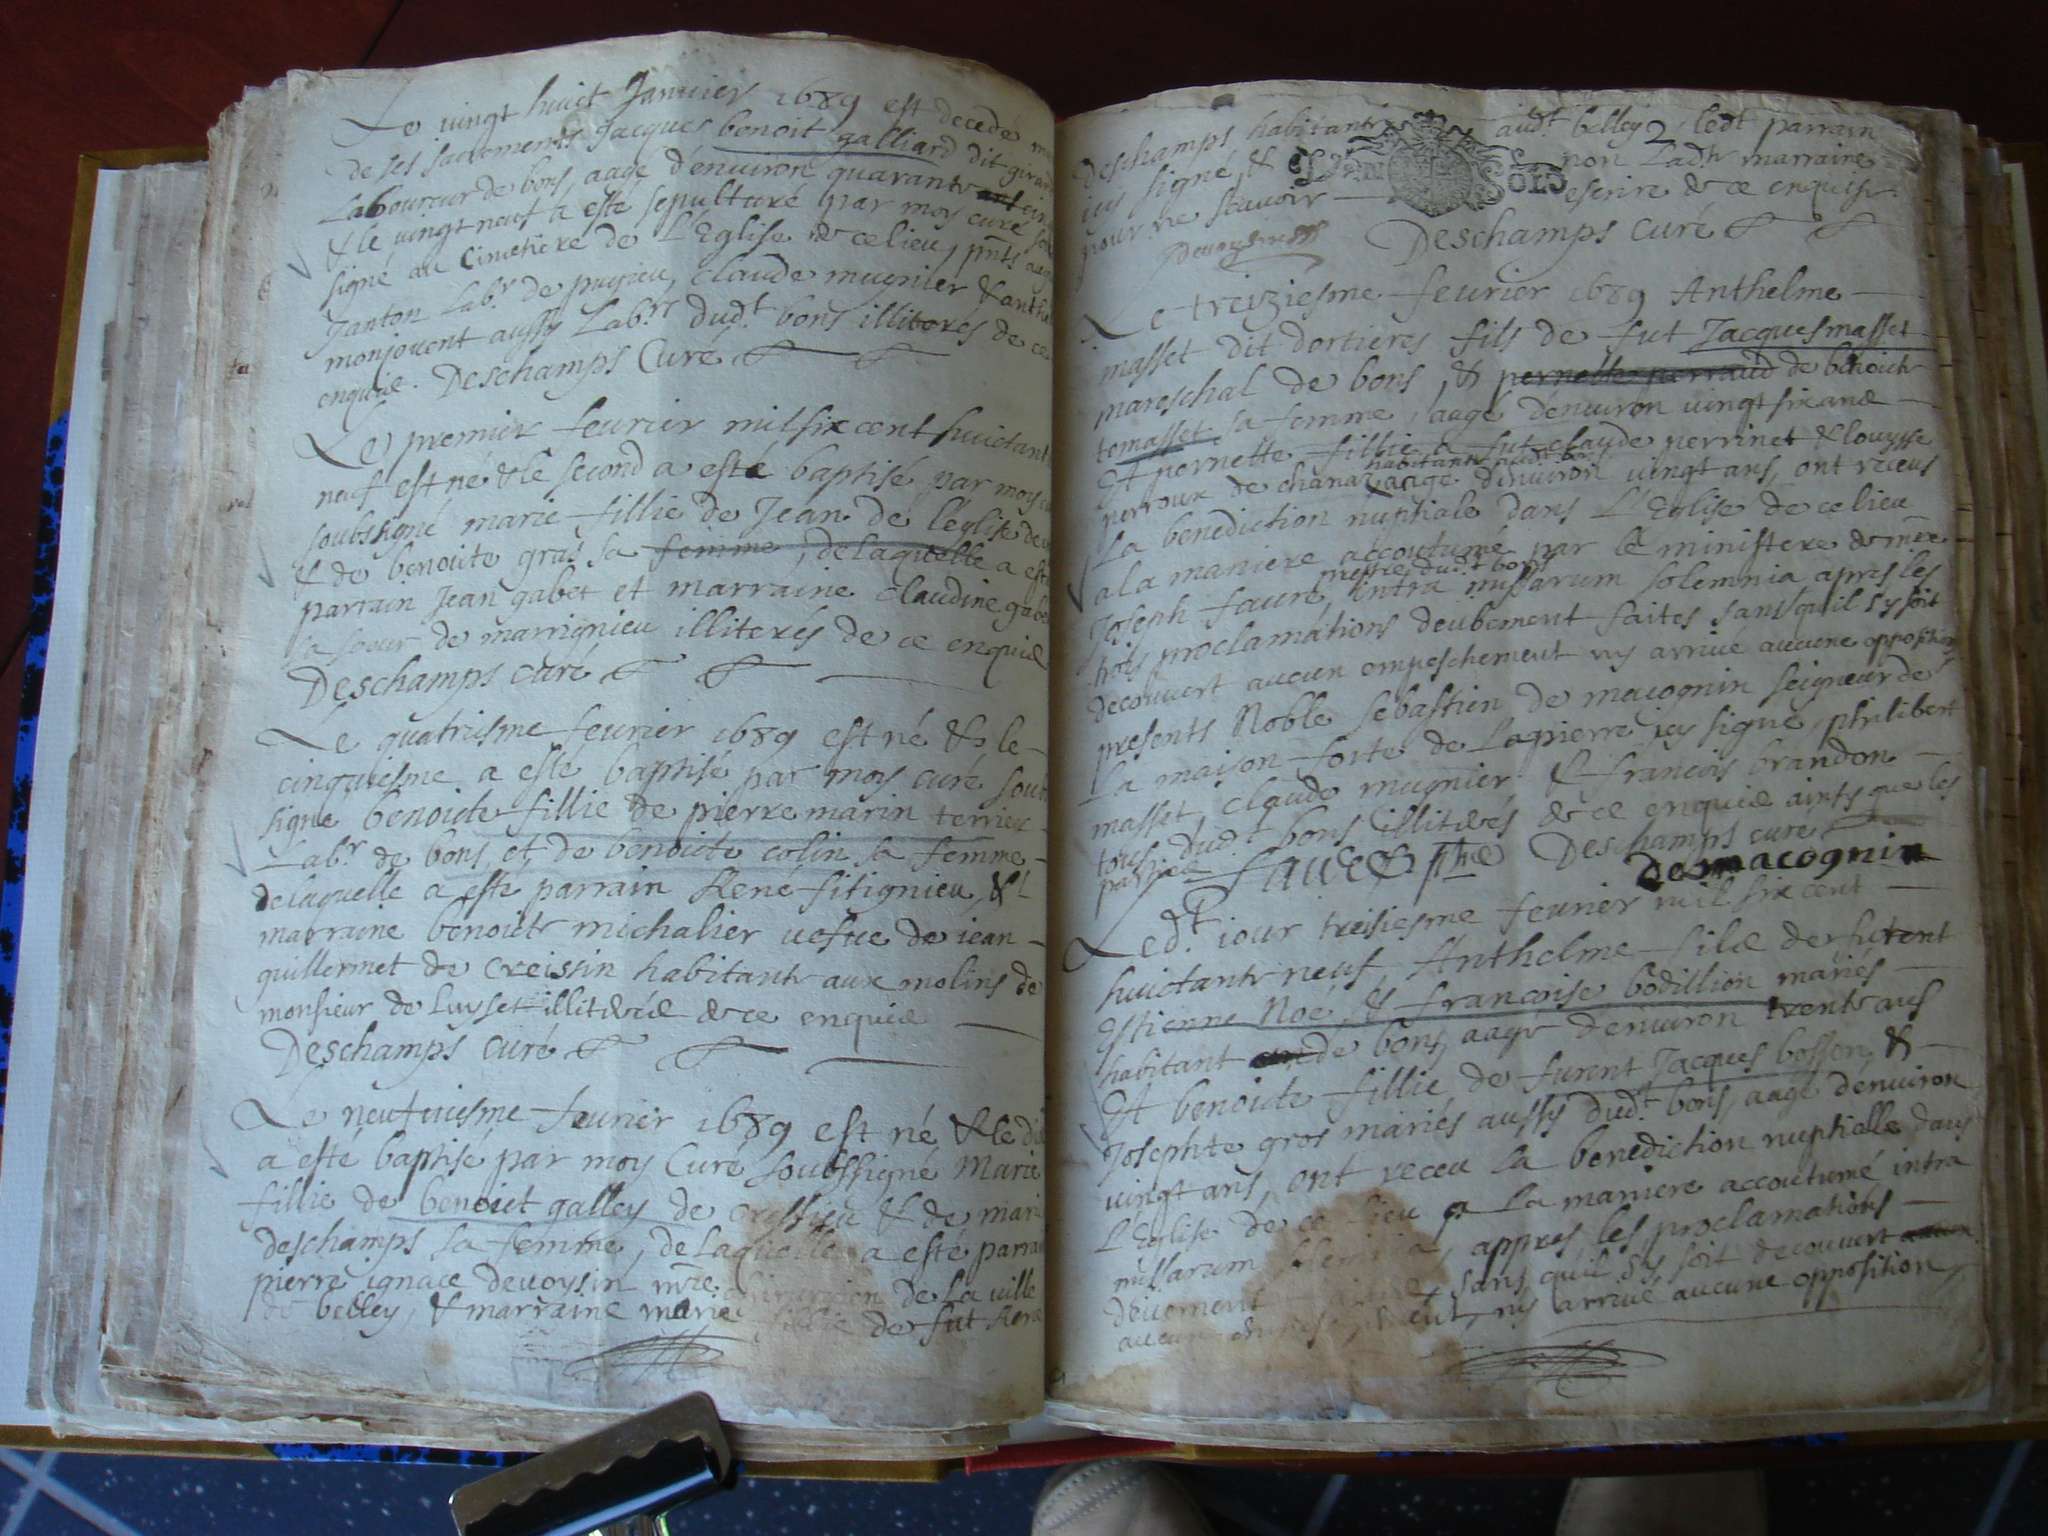 Le vingt huict Januier 1689 est decedé
de ses sacrements Jacques benoit galliard dit
Laboureur de bons, aagé d'enuiron quarante
& le vingt neuf a esté sepulturé par moy curé
signé au Cimetiere de L'Eglise de ce lieu, pnts
Janton Labr. de pugieu, Claude mugnier &
monjouent aussy Labrs. dudt. bons illiterés de ce
enquis. Deschamps Curé
Le premier feurier mil six cent huictante
neuf est né & le second a esté baptisé par moy
soubsigné marie fillie de Jean de l'eglise
& de benoite gras sa femme, de laquelle a esté
parrain Jean gabet et marraine Claudine
sa soeur de marrignieu illiterés de ce enquis
Deschamps curé
Le quatriesme feurier 1689 est né & le
cinquiesme a esté baptisé par moy curé soub
signé benoite fillie de pierre marin terrier
Labr. de bons, et de benoicte colin sa femme
de laquelle a esté parrain René fitignieu, &
marraine benoicte michalier uefue de iean
quillermet de creissin habitante aux molins de
monsieur de Luyset illiterés de ce enquis
Deschamps curé
Le neufuiesme feurier 1689 est né & le
a esté baptisé par moy Curé soubssigné Marie
fillie de benoict galley de & de
deschamps sa femme, de Laquelle a esté
pierre ignace deuoysin mre. de La uille
de belley, & marraine marie fillie de fut
deschamps habitante audt. belley, ledt parrain
icy signé, & UN SOLS non Ladte marraine
pour ne scauoir escrire de ce enquise
Deschamps curé
Le treiziesme feurier 1689 Anthelme
masset dit dortieres fils de fut Jacques masset
mareschal de bons, & pernette perraud de benoicte
tomasset sa femme, aagé d'enuiron uingt six ans
Et pernette fillie a fut claude perrinet & louyse
habitante
perroux de chanaz aagé d'enuiron uingt ans, ont receus
La benediction nuptiale dans L'Eglise de ce lieu
a la maniere accoutumé par le ministere de mre.
prestre dudt. bons
Joseph faure, intra missarum solemnia apres les
trois proclamations deubement faites sans quil s'y soit
decouuert aucun empeschement ny arriué aucune opposition
presents Noble sebastien de macognin seigneur de
La maison forte de Lapierre icy signé, philibert
masset, claude mugnier & francois brandon
tous dudt. bons illiterés de ce enquis ainsy que les
parties Deschamps curé
demacognin
Ledt. iour treisiesme feurier mil six cent
huictante neuf, Anthelme fils de furent
Estienne Noé, & francoise bodillion mariés
habitant de bons, aagé d'enuiron trente ans
Et benoicte fillie de furent Jacques bosson, &
Josephte gros mariés aussy dudt. bons, aagé d'enuiron
uingt ans, ont receu La benediction nuptielle dans
L'Eglise de ce lieu a La maniere accoutumé intra
missarum appres les proclamations
deuement sans quil s'y soit decouuert
ny arriué aucune opposition